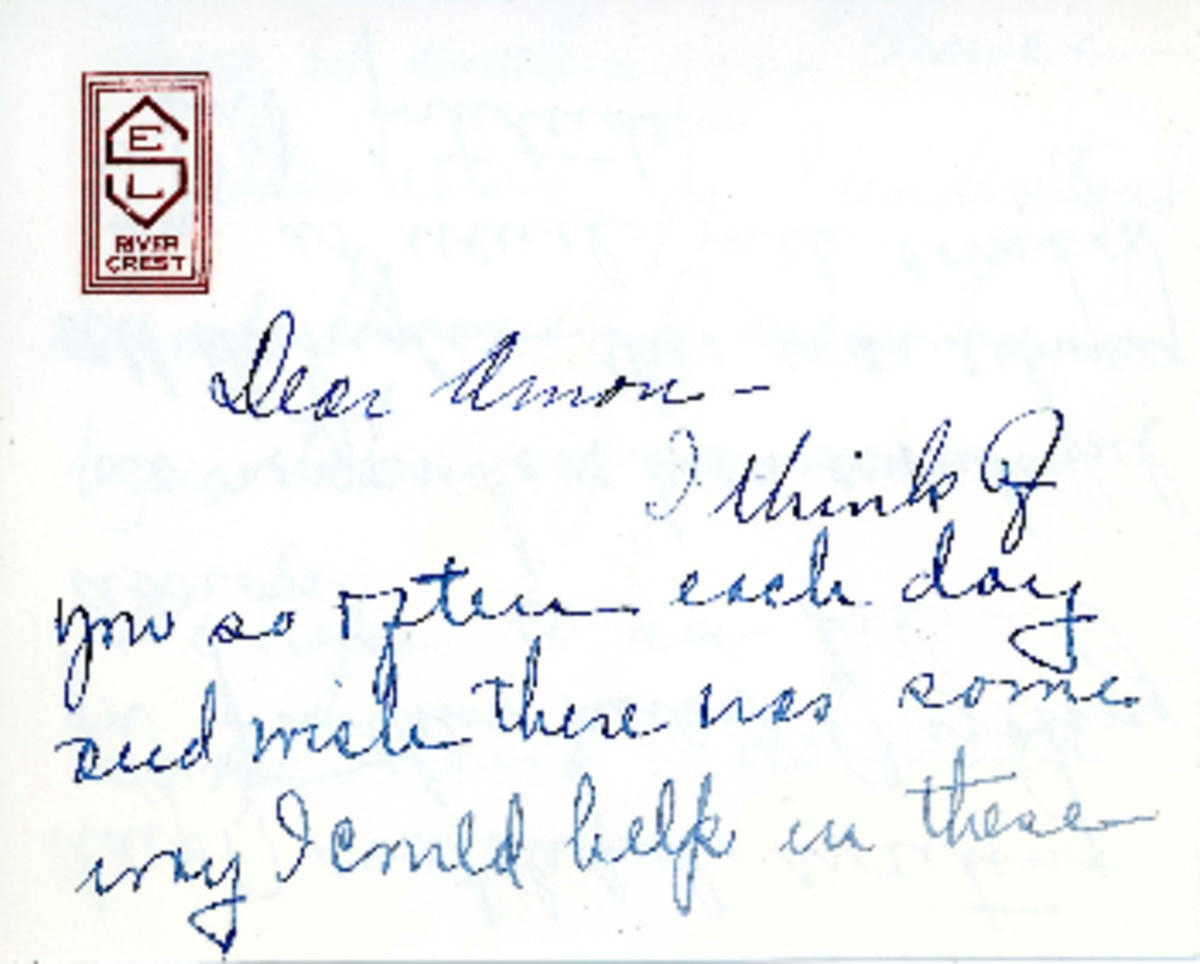 E
L
RIVER
CREST
Dear Amon -
I think of
you so often each day
and wish there was some
way I could help in these